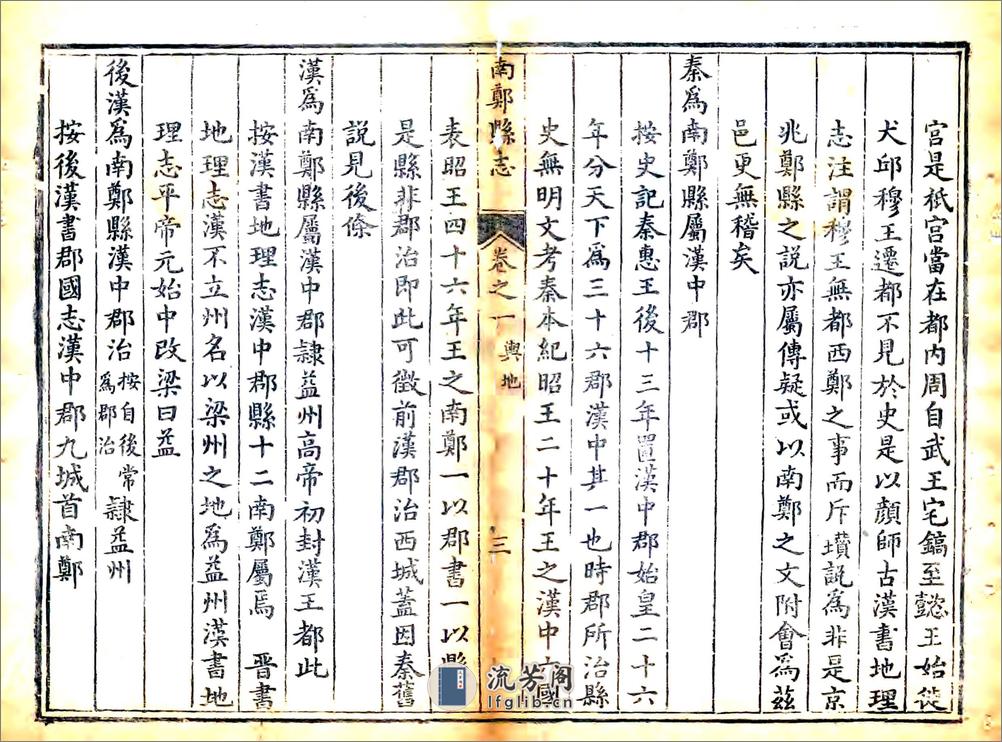 宫是祇宫當在都内周自武王宅鎬至懿王始徙
犬邱穆王遷都不見於史是以顔師古漢書地理
志注謂穆王無都西鄭之事而斥瓚説為非是京
兆鄭縣之説亦屬傳疑或以南鄭之文附會為兹
邑更無稽矣
秦爲南鄭縣屬漢中郡
按史記秦惠王後十三年置漢中郡始皇二十六
年分天下爲三十六郡漢中其一也時郡所治縣
史無明文考秦本紀昭王二十年王之漢中六國
南鄭縣志 卷之一 輿地 三
表昭王四十六年王之南鄭一以郡書一以縣
是縣非郡治即此可徵前漢郡治西城蓋因秦舊
説見後條
漢爲南鄭縣屬漢中郡隷益州高帝初封漢王都此
按漢書地理志漢中郡縣十二南鄭屬焉 晋書
地理志漢不立州名以梁州之地爲益州漢書地
理志平帝元始中改梁曰益
後漢爲南鄭縣漢中郡治按自後常爲郡治隷益州
按後漢書郡國志漢中郡九城首南鄭
流芳阁
lfglib.cn